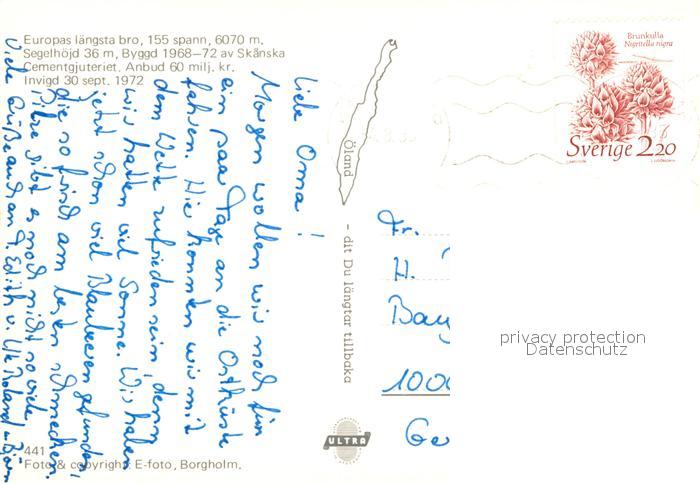 Europas längsta bro, 155 spann, 6070 m.
Segelhöjd 36 m, Byggd 1968–72 av Skånska
Cementgjuteriet. Anbud 60 milj. kr.
Invigd 30 sept. 1972
Liebe Oma!
Morgen wollen wir noch für
ein paar Tage an die Ostküste
fahren. Hier konnten wir mit
dem Wetter zufrieden sein, denn
wir hatten viel Sonne. Wir haben
jetzt schon viel Blaubeeren gefunden,
die so frisch am besten schmecken.
Pilze gibt es noch nicht so viele
Viele Grüße auch an T. Edith v. Ute Roland u. Björn
Öland
- dit Du längtar tillbaka
Brunkulla
Nigritella nigra
Sverige 2.20
Fr.
H.
Bau
1000
Ge
privacy protection
Datenschutz
ULTRA
441
Foto & copyright: E-foto, Borgholm.